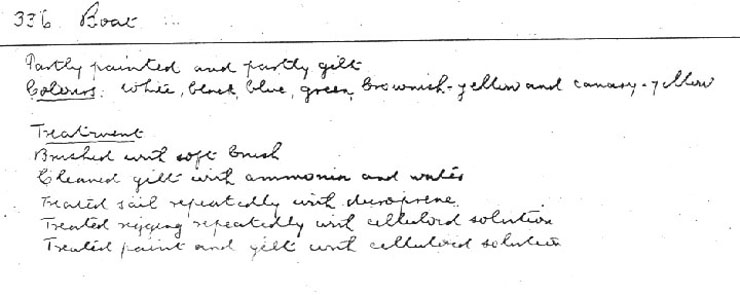 336. Boat
Partly painted and partly gilt
Colours: White, black, blue, green, brownish-yellow and canary-yellow
Treatment
Brushed with soft brush
Cleaned gilt with ammonia and water
Treated sail repeatedly with duroprene
Treated rigging repeatedly with celluloid solution
Treated paint and gilt with celluloid solution